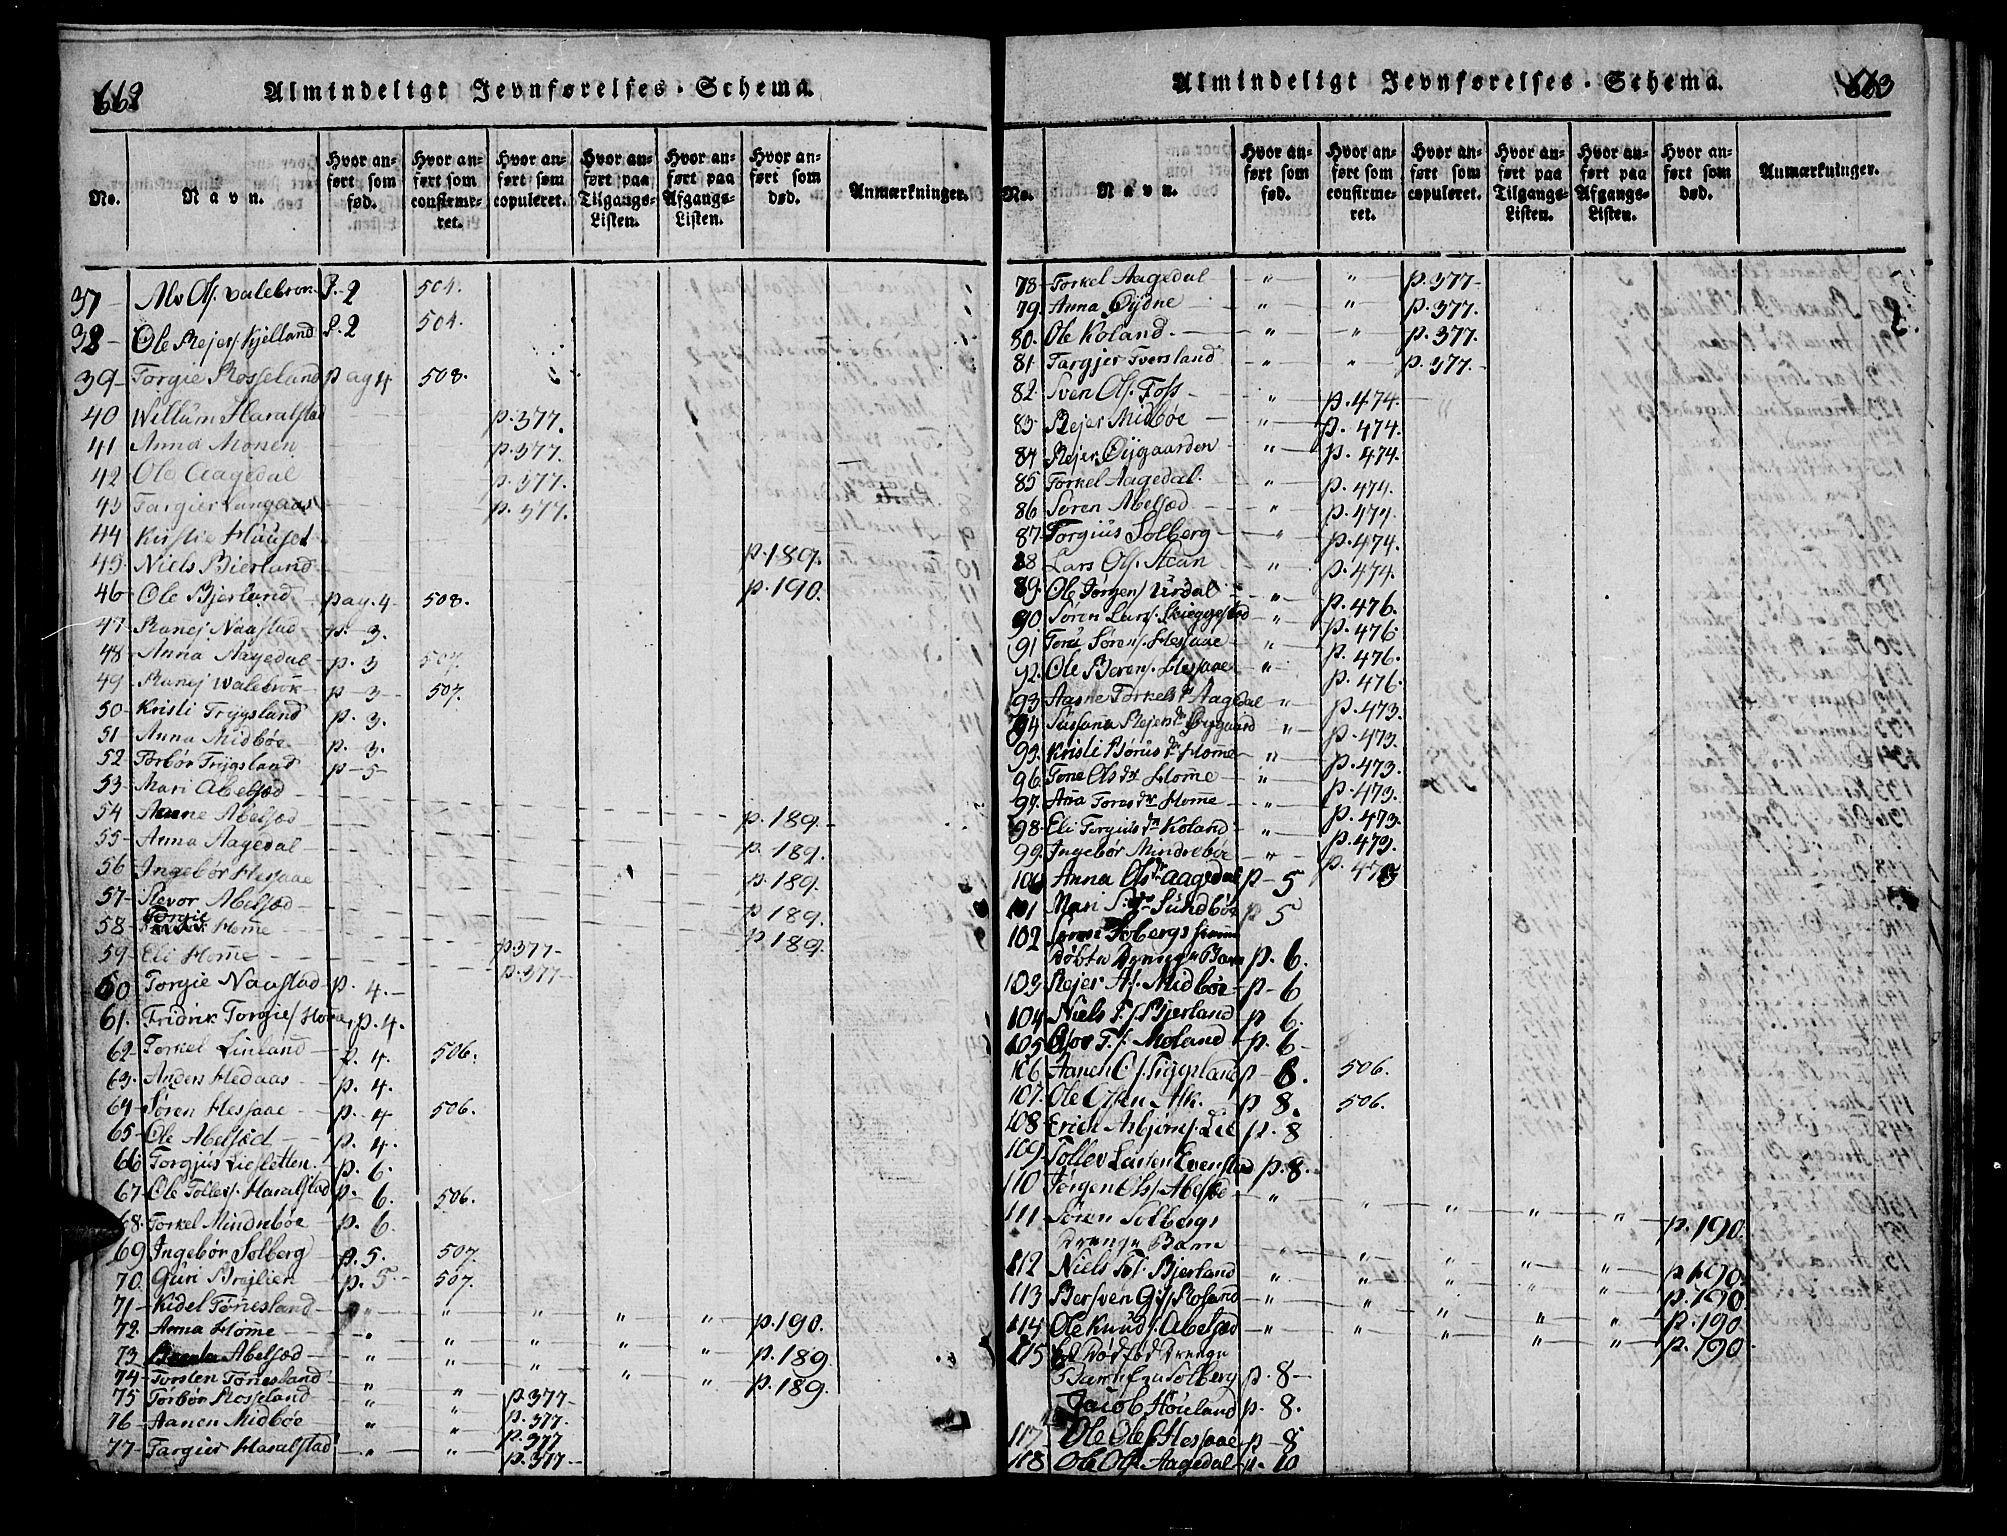 662 Almindeligt Jevnførelses-Schema.
No. Navn. Hvor anført som fød. Hvor anført som confirmeret. Hvor anført som copuleret. Hvor anført paa Tilgangs-Listen. Hvor anført paa Afgangs-Listen. Hvor anført som død. Anmærkninger.
37 Alv Ols. Valebrok P. 2 504.
38 Ole Rejers. Kjelland P. 2 504.
39 Torgie Rosseland pag 4 508.
40 Willum Haralstad p. 377.
41 Anna Monen p. 377.
42 Ole Aagedal p. 377.
43 Targier Langaas p. 377.
44 Kirstie
45 Niels Bierland p. 189.
46 Ole Bjerland pag. 4 508. p. 190.
47 Ranej Naastad p. 3.
48 Anna Aagedal p. 3 507.
49 Ranej Valebrok p 3 507.
50 Kristi Trygsland p. 3.
51 Anna Midbøe p. 3.
52 Torbør Trygsland p 5
53 Mari Abelsæd
54 Anne Abelsæd p. 189.
55 Anna Aagedal p. 189.
56 Ingebør Hessaae p. 189.
57 Revor Abelsæd p. 189.
58 Torgie Home p. 189.
59 Eli Home p. 377
60 Torgie Naastad p. 4. p. 377
61. Fridrik Torgies/ Home p. 4.
62 Torkel Linland p. 4. 506.
63. Anders Hedaas p. 4.
64 Søren Hessaae p. 4 506.
65 Ole Abelsæd p. 4.
66 Torgjus Liesletten p. 6.
67 Ole Tollefs. Haralstad p. 6. 506.
68. Torkel Mindrebøe p. 6.
69 Ingebør Solberg p. 5. 507.
70. Guri Brejlien p. 5 507.
71 Kidel Tønnesland " " " " " p. 190.
72. Anna Home " " " " " p. 189
73 Abelsæd " " " " " p. 189.
74 Torsten Tønnesland " " p. 377
75 Torbør Rosseland " " p. 377
76 Aanen Midbøe " " p. 377
77 Targier Haralstad " " p. 377
Almindeligt Jevnførelses-Schema. 663
No. Navn. Hvor anført som fød. Hvor anført som confirmeret. Hvor anført som copuleret. Hvor anført paa Tilgangs-Listen. Hvor anført paa Afgangs-Listen. Hvor anført som død. Anmærkninger.
78 Torkel Aagedal " " p. 377
79. Anna Øydne " " p. 377.
80. Ole Koland " " p. 377.
81. Targjer Tversland " " p. 377.
82. Sven Ols. Foss " p. 474.
83. Rejer Midbøe " p. 474.
84 Rejer Øygaarden " p. 474.
85 Torkel Aagedal. " p. 474.
86 Søren Abelsæd " p. 474.
87. Torgius Solberg " p. 474.
88 Lars Ols. Aaan " p. 474.
89. Ole Jørgens/ Urdal " p. 476.
90 Søren Lars/. Skieggestad " p. 476
91 Toru Sørens/. Hessaae " p. 476.
92. Ole Berens/. Hessaae " p. 476.
93 Aasne Torkels dr Aagedal " p. 473.
94 Susana Rejers dr Øygaard " p. 473.
95. Kristi Børus dr Home " p. 473.
96. Tone Ols dr Home " p. 473.
97. Ana Tores dr Home " p. 473.
98. Eli Torgius dr Koland " p. 473.
99. Ingebør Mindrebøe " p. 473
100 Anna Ols dr Aagedal p 5
101 Mari Sundbøe p 5
102 Søren Solbergs
døbte Drenge Barn p. 6.
103. Rejer A/. Midbøe p 6
104 Niels T./. Bjerland p 6.
105 T./. Moland p. 6
106 Aanen O/. Tigesland p 8. 506.
107. Ole Olsen Ask. p 8. 506.
108 Erich Asbjørns/. Lie p. 8
109. Tollev Larsen Evenstad p. 8.
110 Jørgen Ols/ Abelsæ " " " " " p. 190.
111 Søren Solbergs
Drenge Barn " " " " " p. 190.
112 Niels To/. Bjerland " " " " " p. 190
113 Bersven G/. Roland " " " " " p. 190
114 Ole Knud/. Abelsæd " " " " " p. 190
115 Et Dødfød Drenge
Barn fra Solberg p. 8
Jacob Høiland p. 8.
117 Ole Ols. Hessaae p 8
118 Ole Ols. Aagedal p. 10